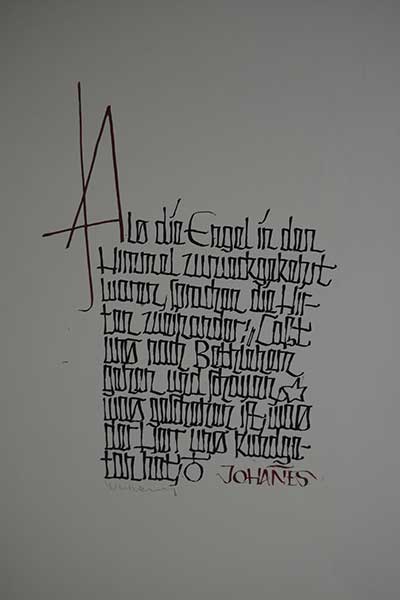 Als die Engel in den
Himmel zurückgekehrt
waren, sprachen die Hir-
ten zueinander: „Laßt
uns nach Bethlehem
gehen und schauen,
was geschehen ist, was
der Herr uns kundge-
tan hat;
JOHAÑES